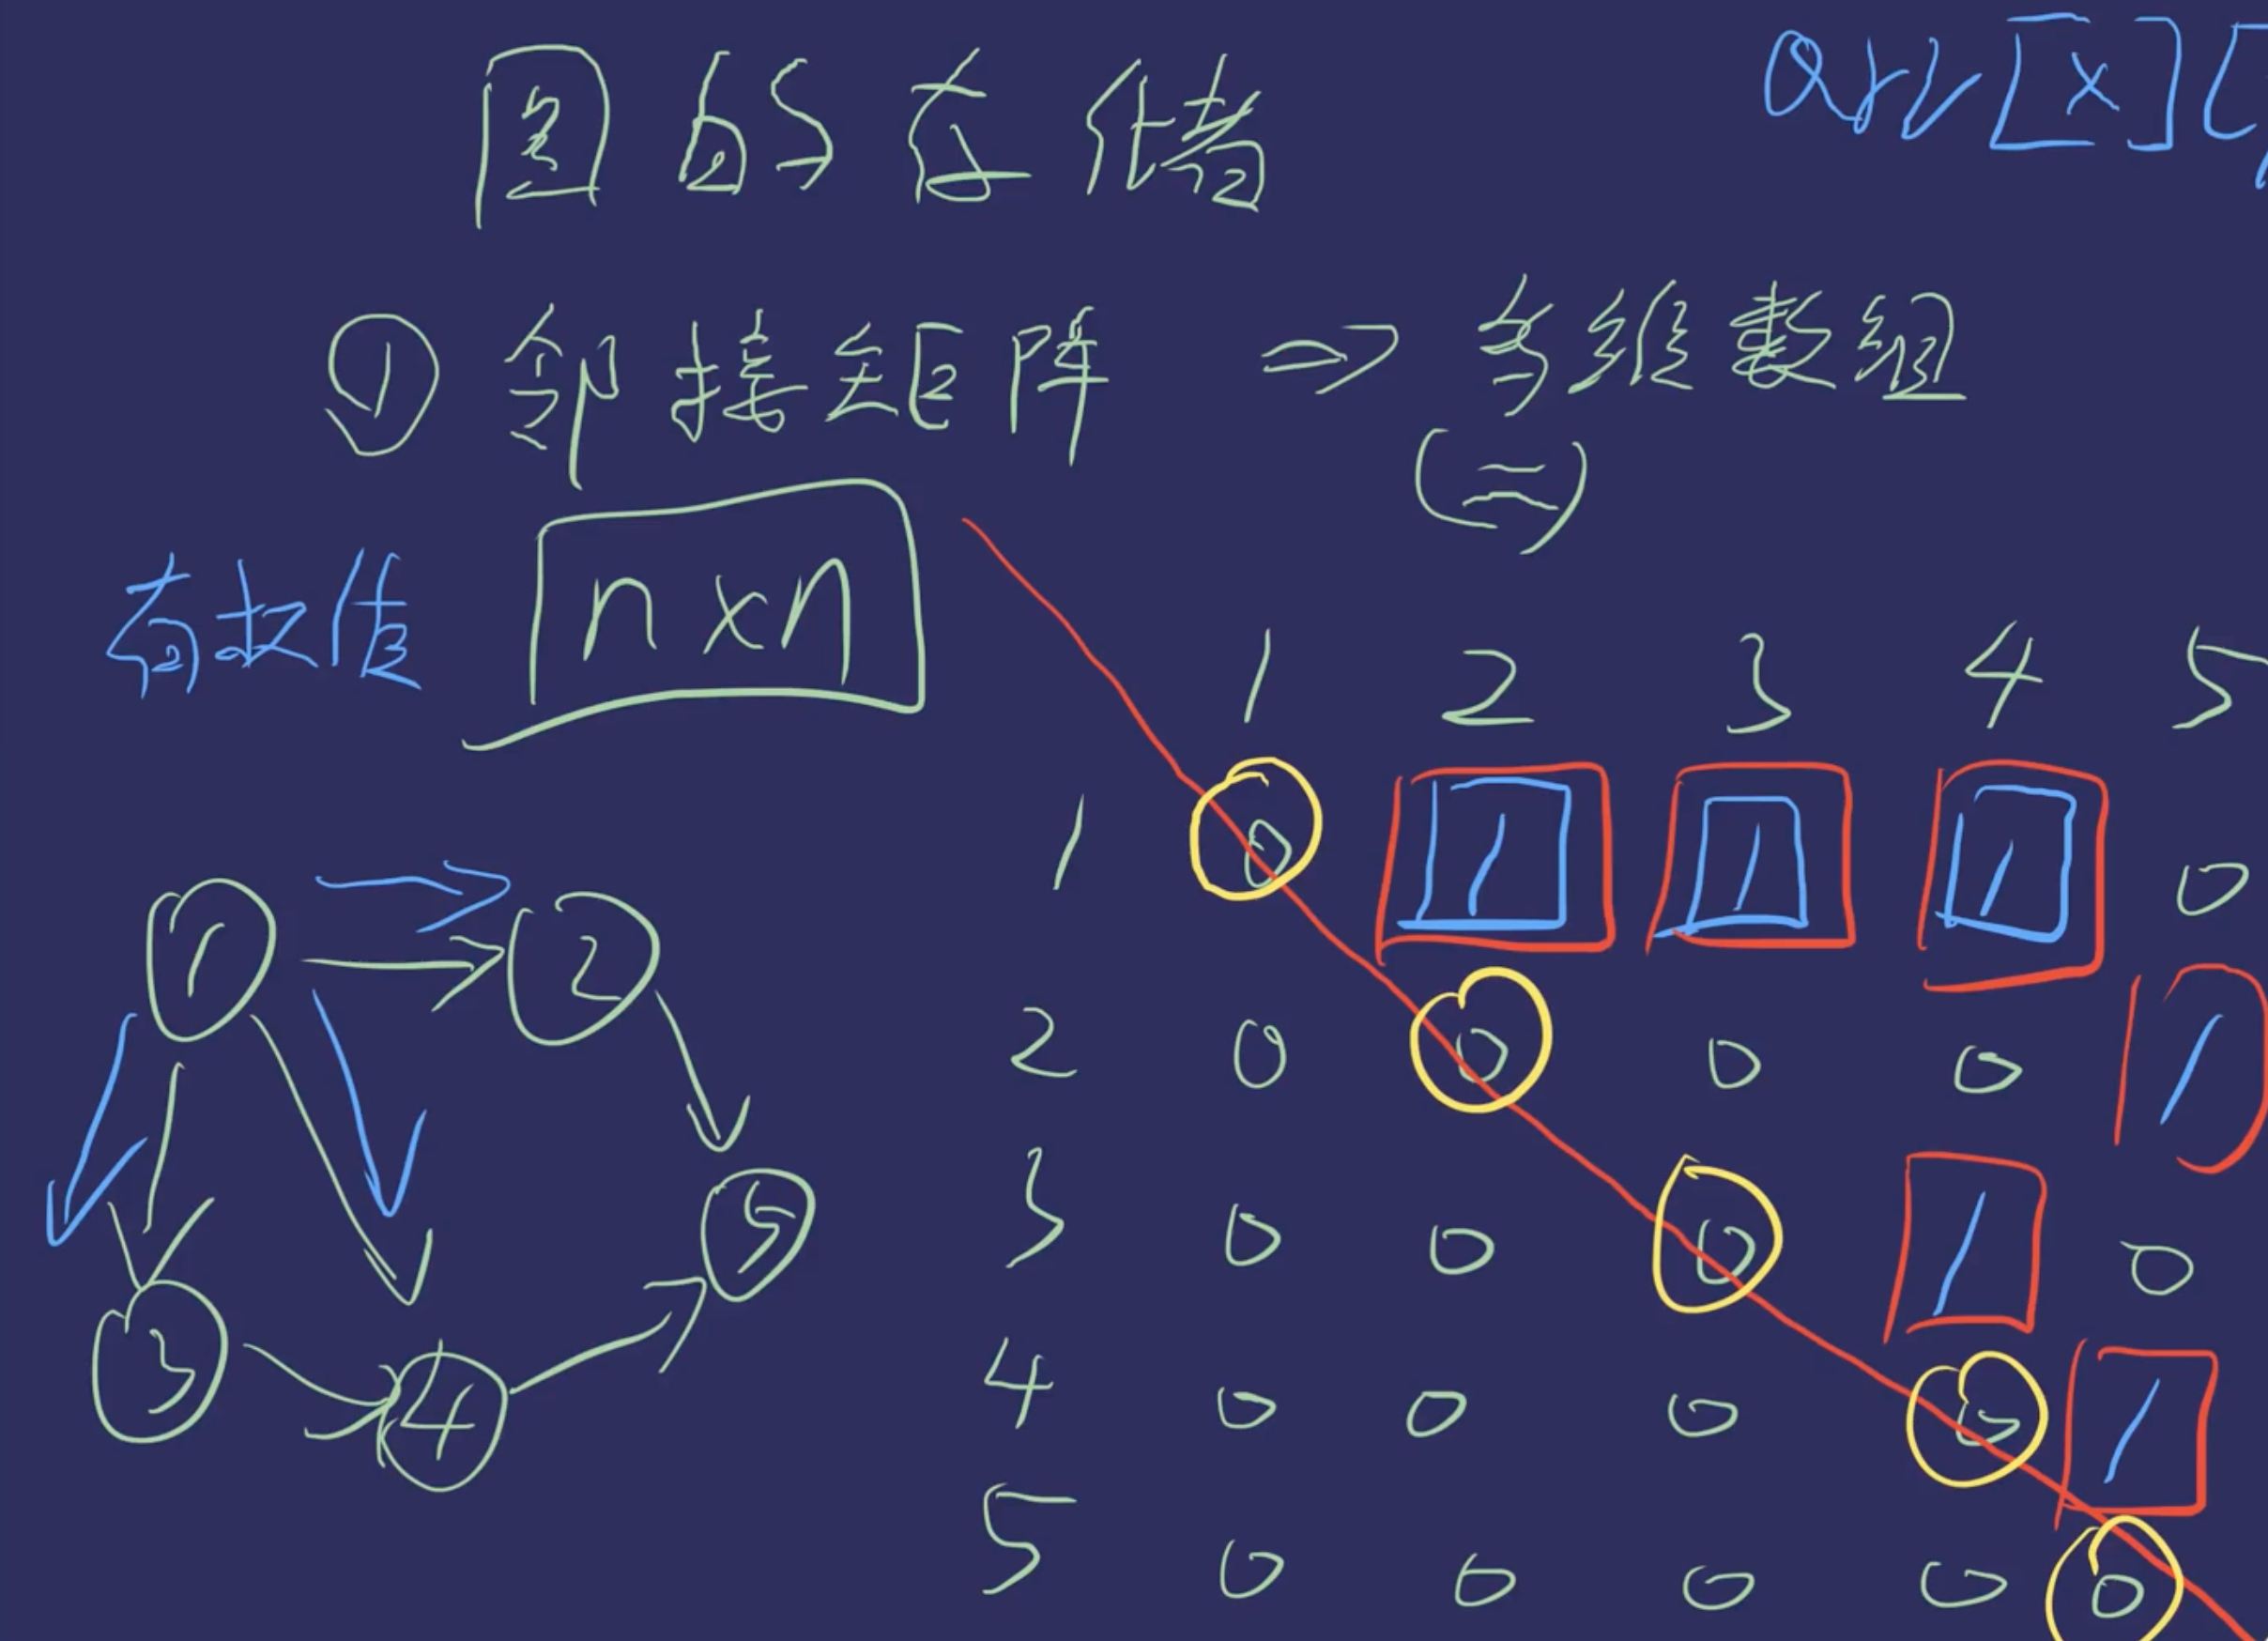 图的存储
arr[x][
① 邻接矩阵 ⇒ 多维数组
(二)
有权值
n×n
1 2 3 4 5
1 0 1 1 1 0
2 0 0 0 0 1
3 0 0 0 1 0
4 0 0 0 0 1
5 0 0 0 0 0
1 2
5
3 4